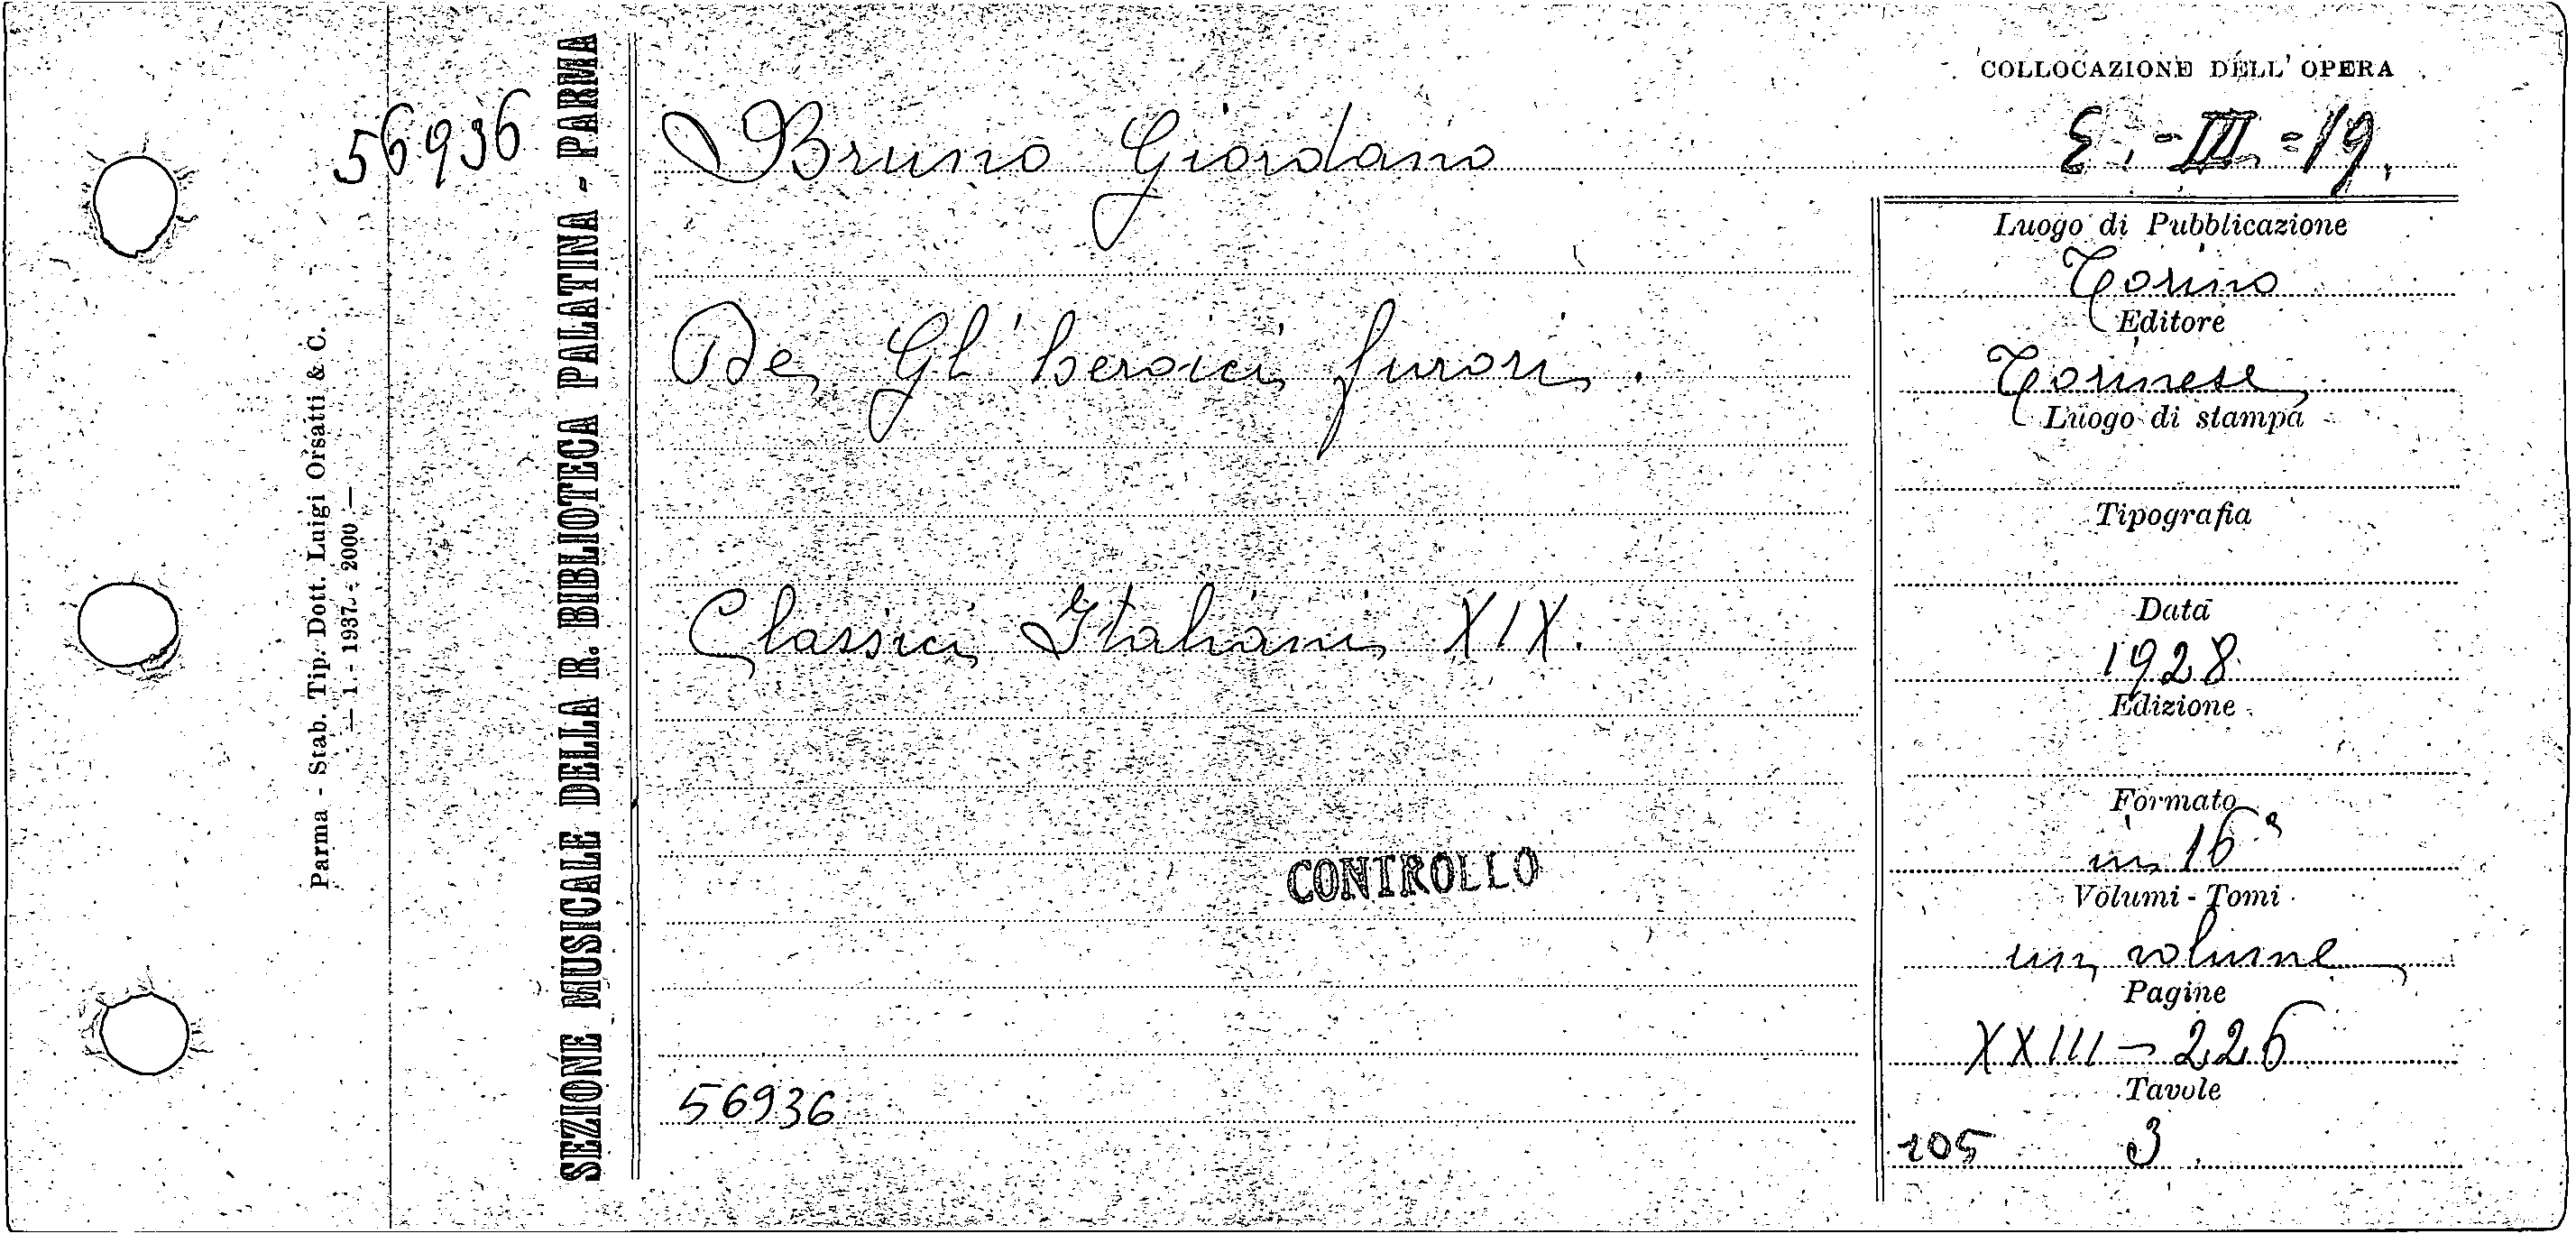 COLLOCAZIONE DELL' OPERA
56936
Bruno Giordano
E. - III. = 19.
Luogo di Pubblicazione
Torino
Editore
De Gl' heroici furori.
Torinese
Luogo di stampa
Tipografia
Classici Italiani XIX.
Data
1928
Edizione
Formato
in 16°
CONTROLLO
Volumi - Tomi
un volume
Pagine
XXIII - 226
Tavole
56936
105 3
SEZIONE MUSICALE DELLA R. BIBLIOTECA PALATINA - PARMA
Parma - Stab. Tip. Dott. Luigi Orsatti & C.
— 1 - 1937 - 2000 —